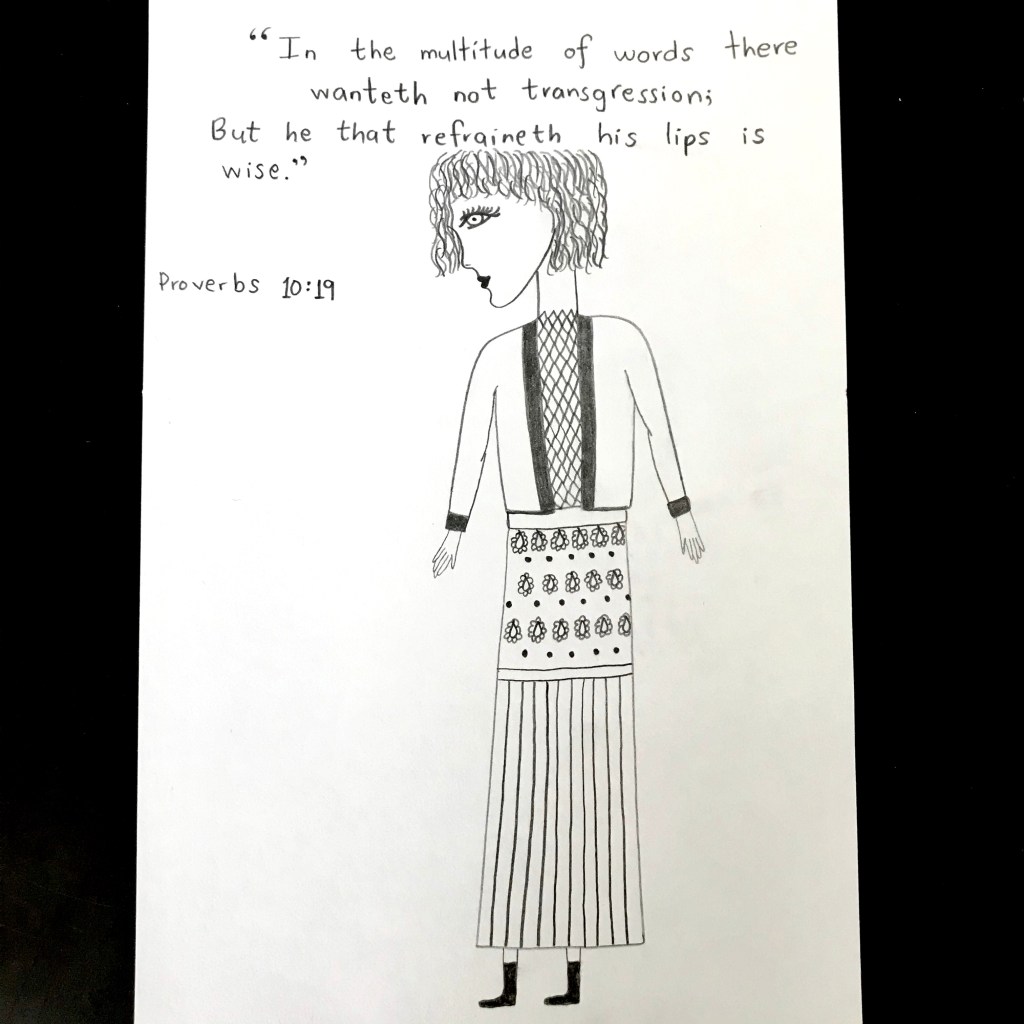 “In the multitude of words there
wanteth not transgression;
But he that refraineth his lips is
wise.”
Proverbs 10:19